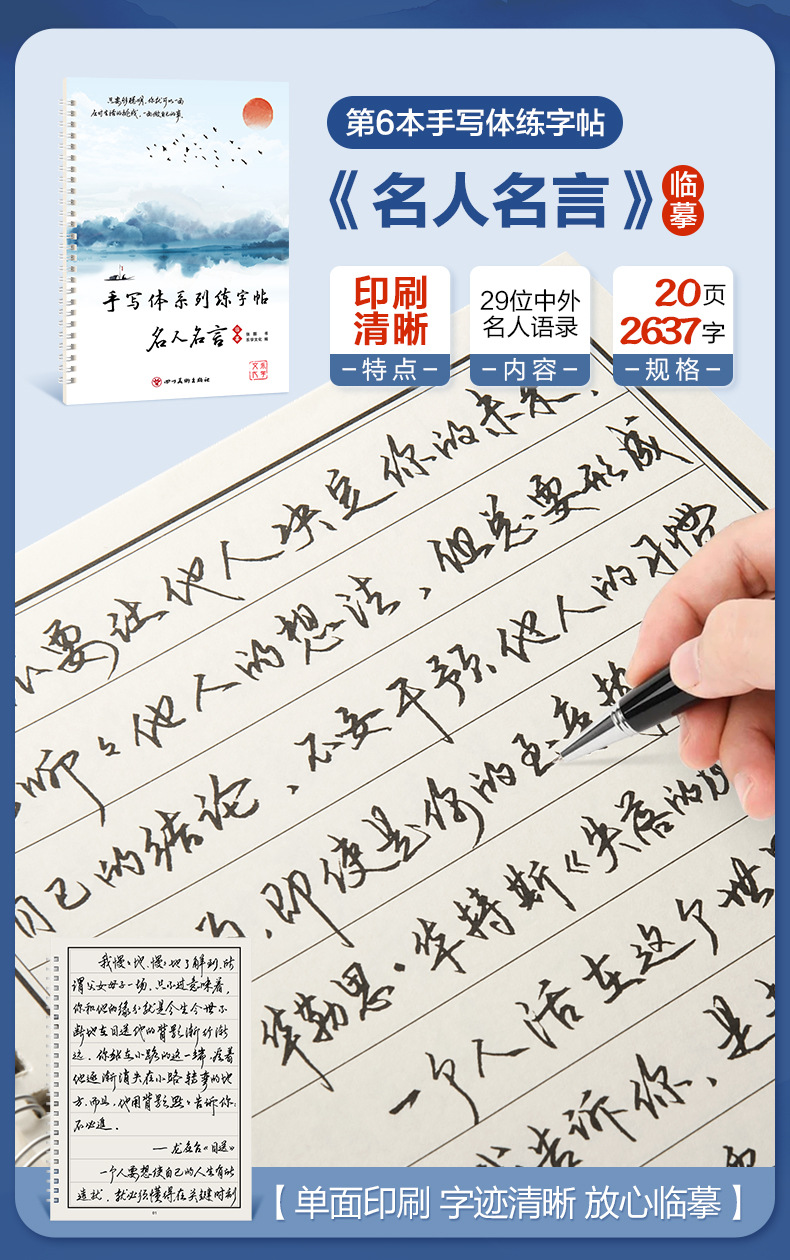 只要够聪明,你就可以一面
应付生活的挑战,一面做自己的事。
手写体系列练字帖
名人名言
临摹
四川美术出版社
第6本手写体练字帖
《名人名言》
临摹
印刷
清晰
特点
29位中外
名人语录
内容
20页
2637字
规格
要让他人决定你的未来,
听听他人的想法,但总要形成
自己的结论,不妄干预他人的习惯
,即使是你的至
华勒思·华特斯《失落的
一个人活在这个世
我告诉你,是
我慢慢地、慢慢地了解到,所
谓父女母子一场,只不过意味着,
你和他的缘分就是今生今世不
断地在目送他的背影渐行渐
远。你站在小路的这一端,看着
他逐渐消失在小路转弯的地
方,而且,他用背影默默告诉你:
不必追。
——龙应台《目送》
一个人要想使自己的人生有所
造就,就必须懂得在关键时刻
【单面印刷 字迹清晰 放心临摹】